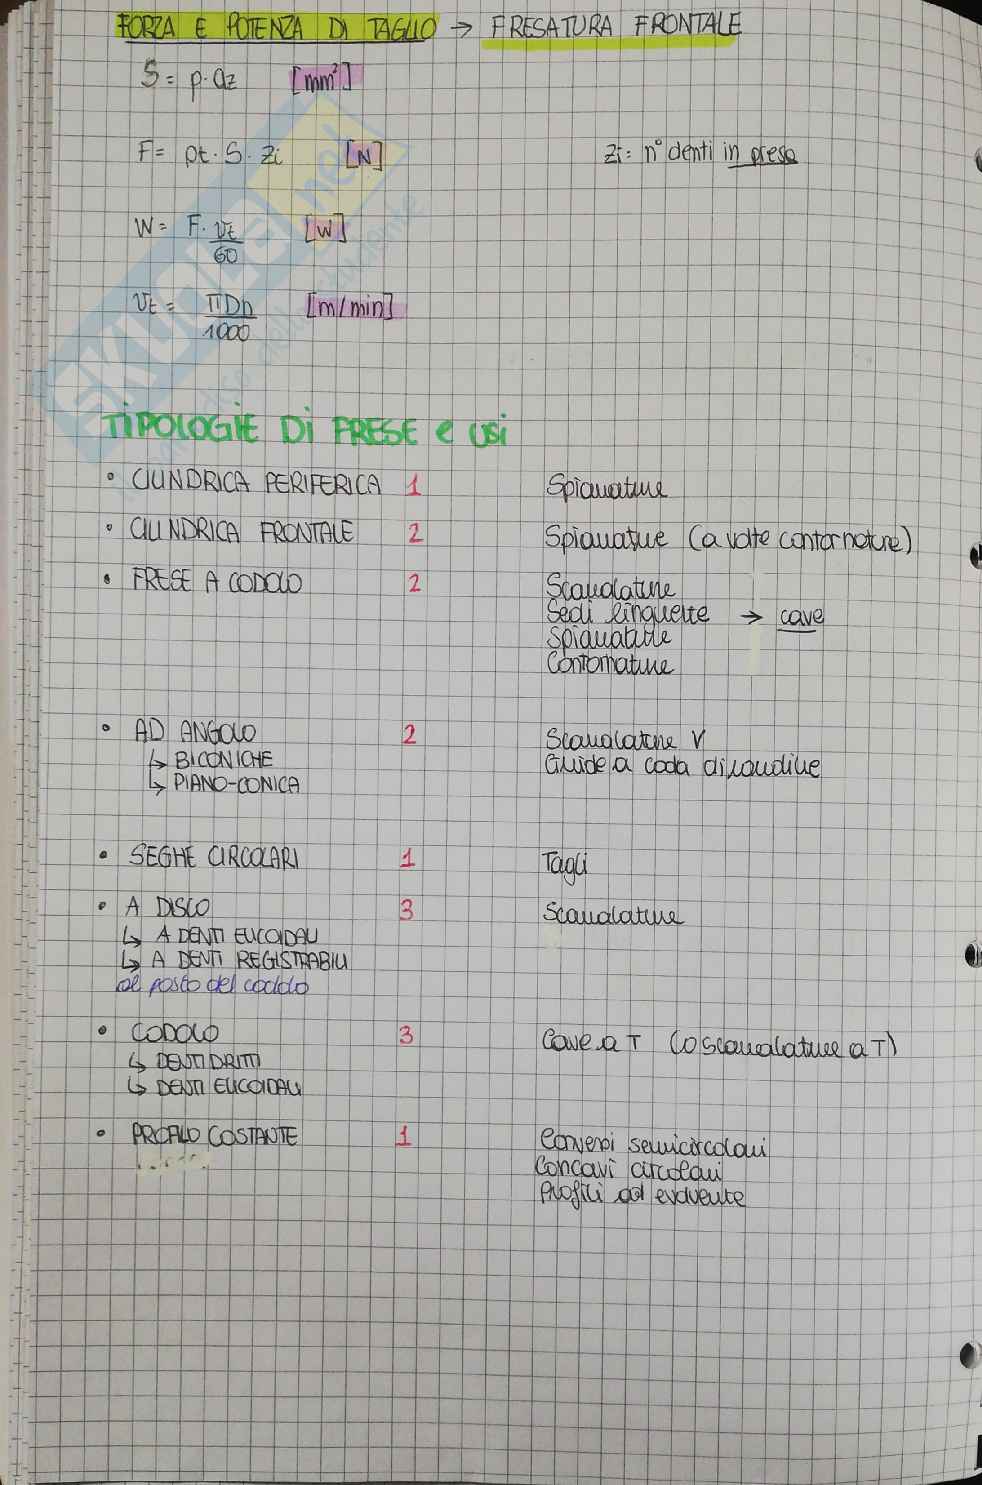 FORZA E POTENZA DI TAGLIO → FRESATURA FRONTALE
S = p · az [mm²]
F = pt · S · Zi [N] Zi: n° denti in presa
W = F · vt/60 [W]
vt = πDn/1000 [m/min]
SKUOLA.net
TIPOLOGIE DI FRESE e USI
• CILINDRICA PERIFERICA 1 Spianature
• CILINDRICA FRONTALE 2 Spianature (a volte contornature)
• FRESE A CODOLO 2 Scanalature
Sedi linguette → cave
Spianature
Contornature
• AD ANGOLO 2 Scanalature V
↳ BICONICHE Guide a coda di rondine
↳ PIANO-CONICA
• SEGHE CIRCOLARI 1 Tagli
• A DISCO 3 Scanalature
↳ A DENTI ELICOIDALI
↳ A DENTI REGISTRABILI
al posto del codolo
• CODOLO 3 Cave a T (o scanalature a T)
↳ DENTI DRITTI
↳ DENTI ELICOIDALI
• PROFILO COSTANTE 1 Convessi semicircolari
Concavi circolari
Profili ad evolvente